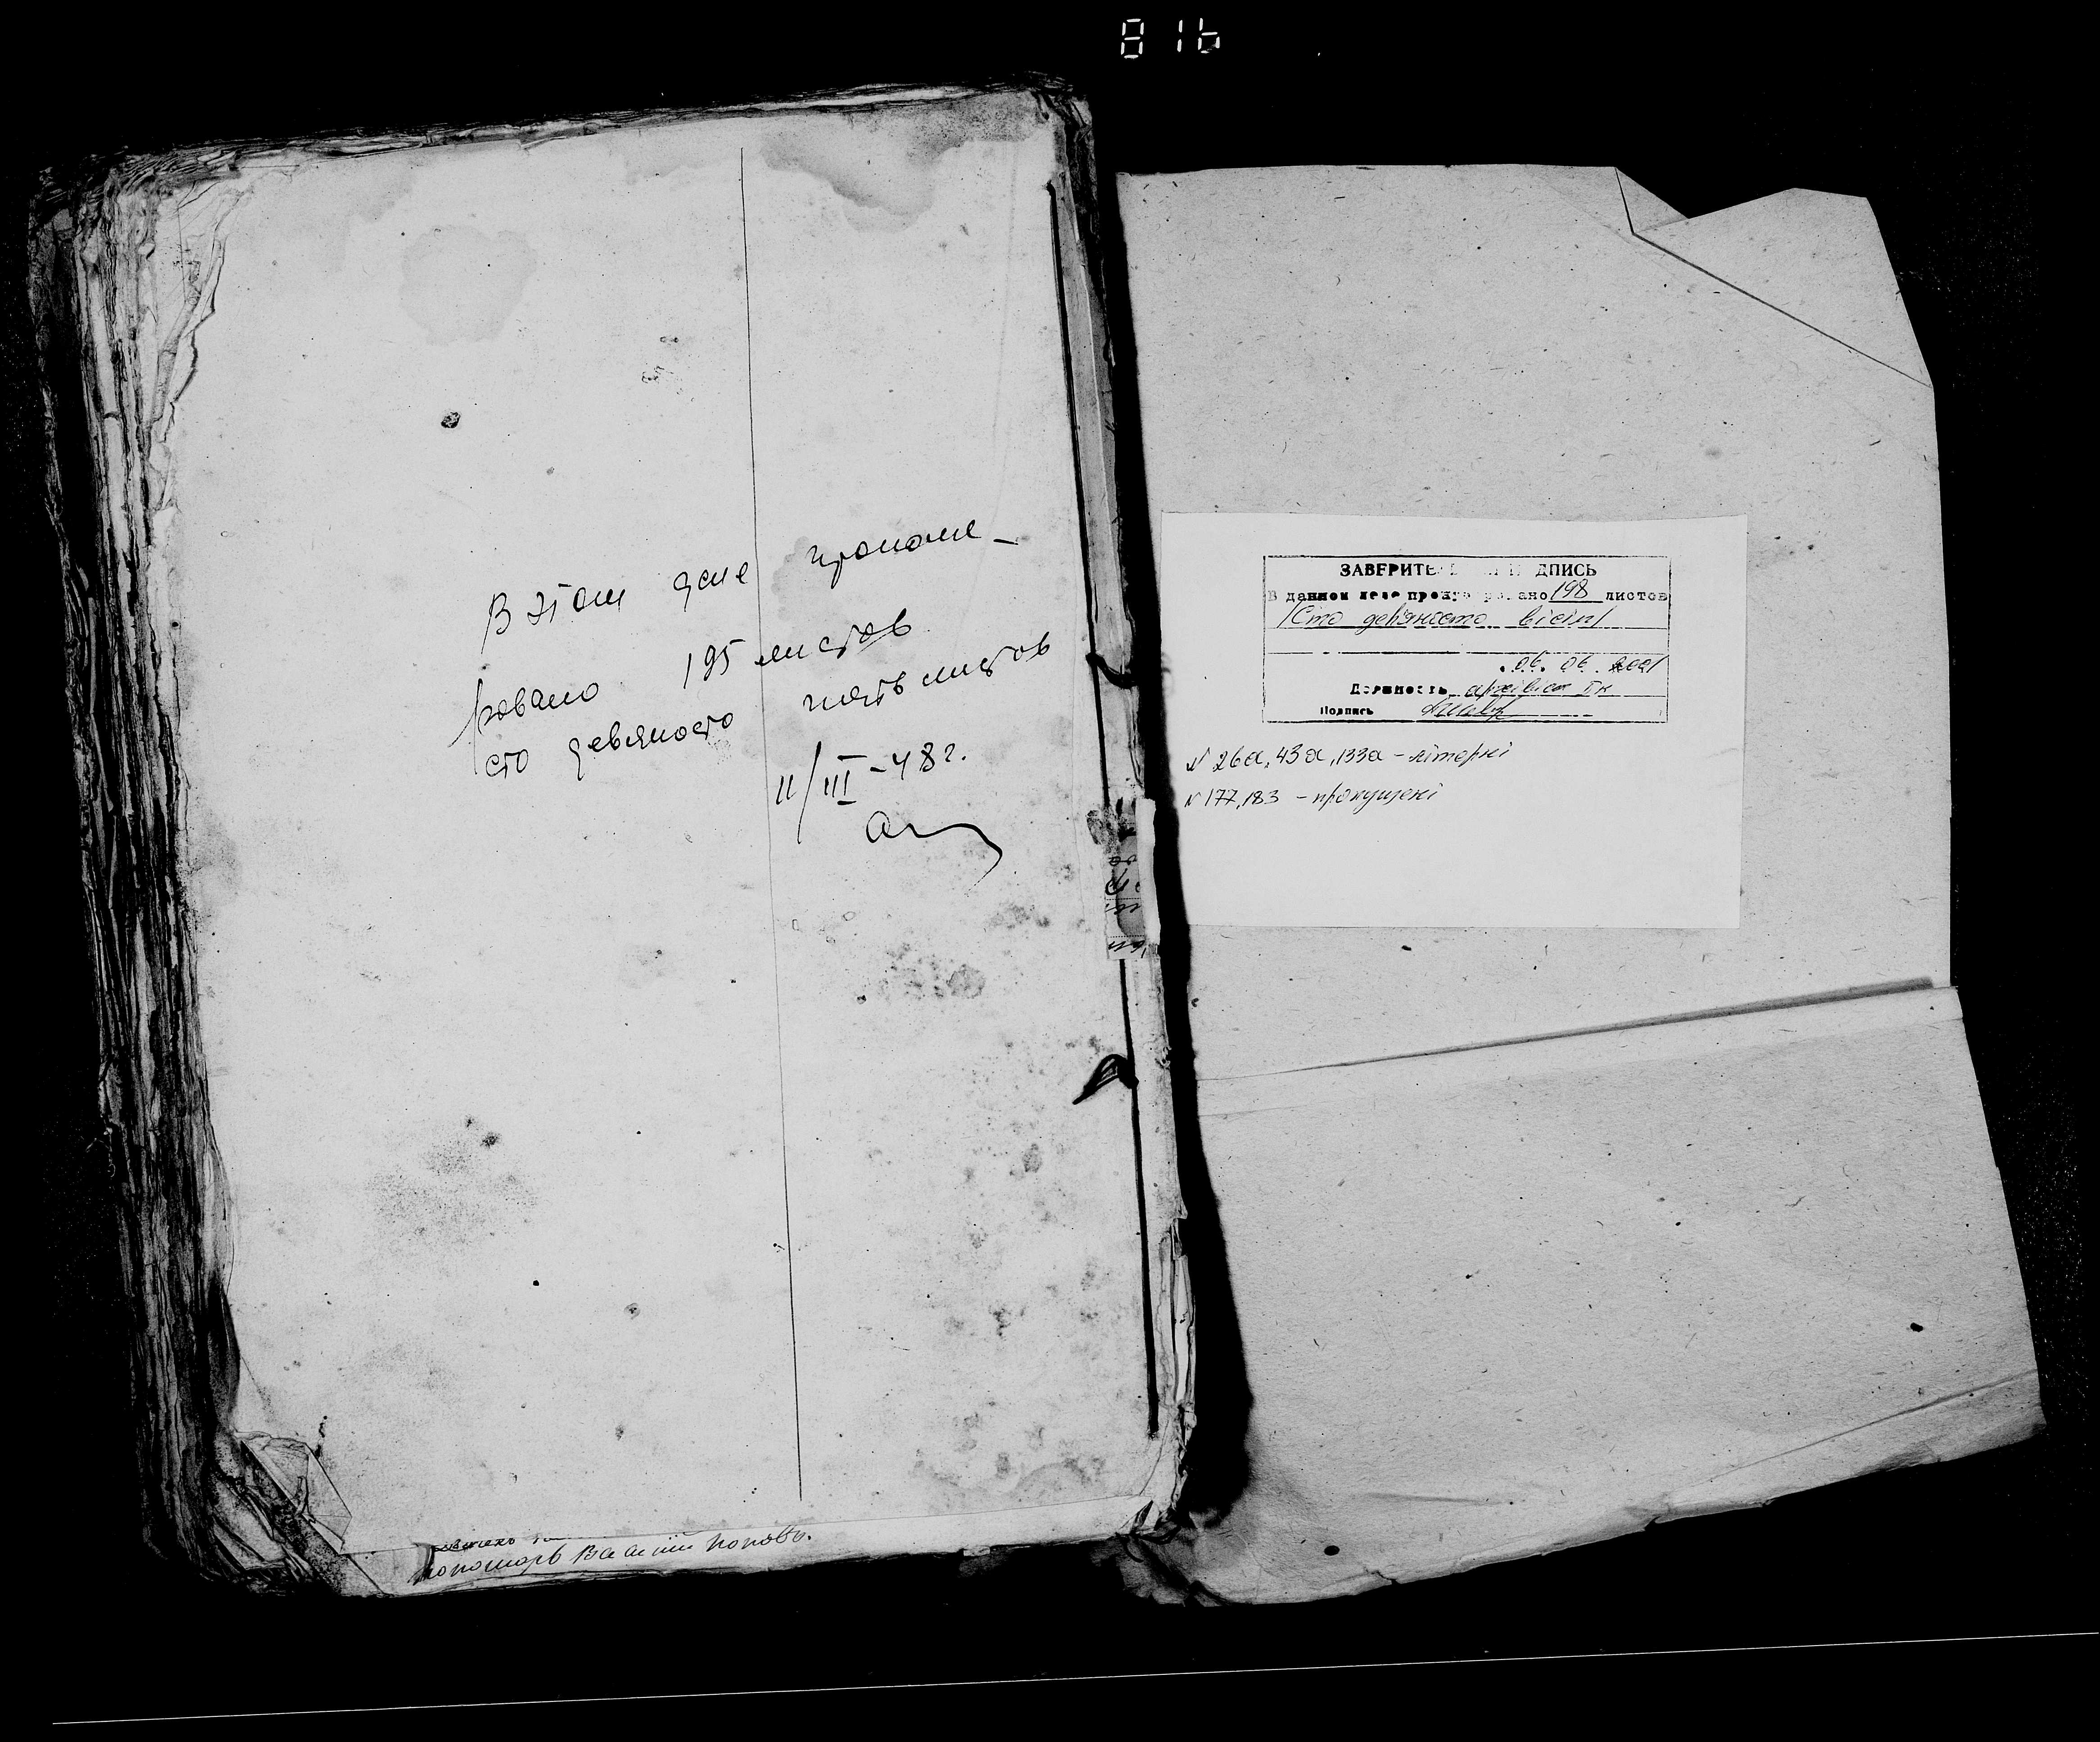 816
В этом деле прономе-
ровано 195 листов
сто девяносто пять листов
11/III-48г.
пономарь Василий Поповъ.
ЗАВЕРИТЕ ДПИСЬ
В данном деле прону ано 198 листов
/Сто дев'яносто вісім/
06. 06. 2001
Должность архівіст IIк
Подпись
N 26а, 43а, 133а - літерні
N 177, 183 - пропущені